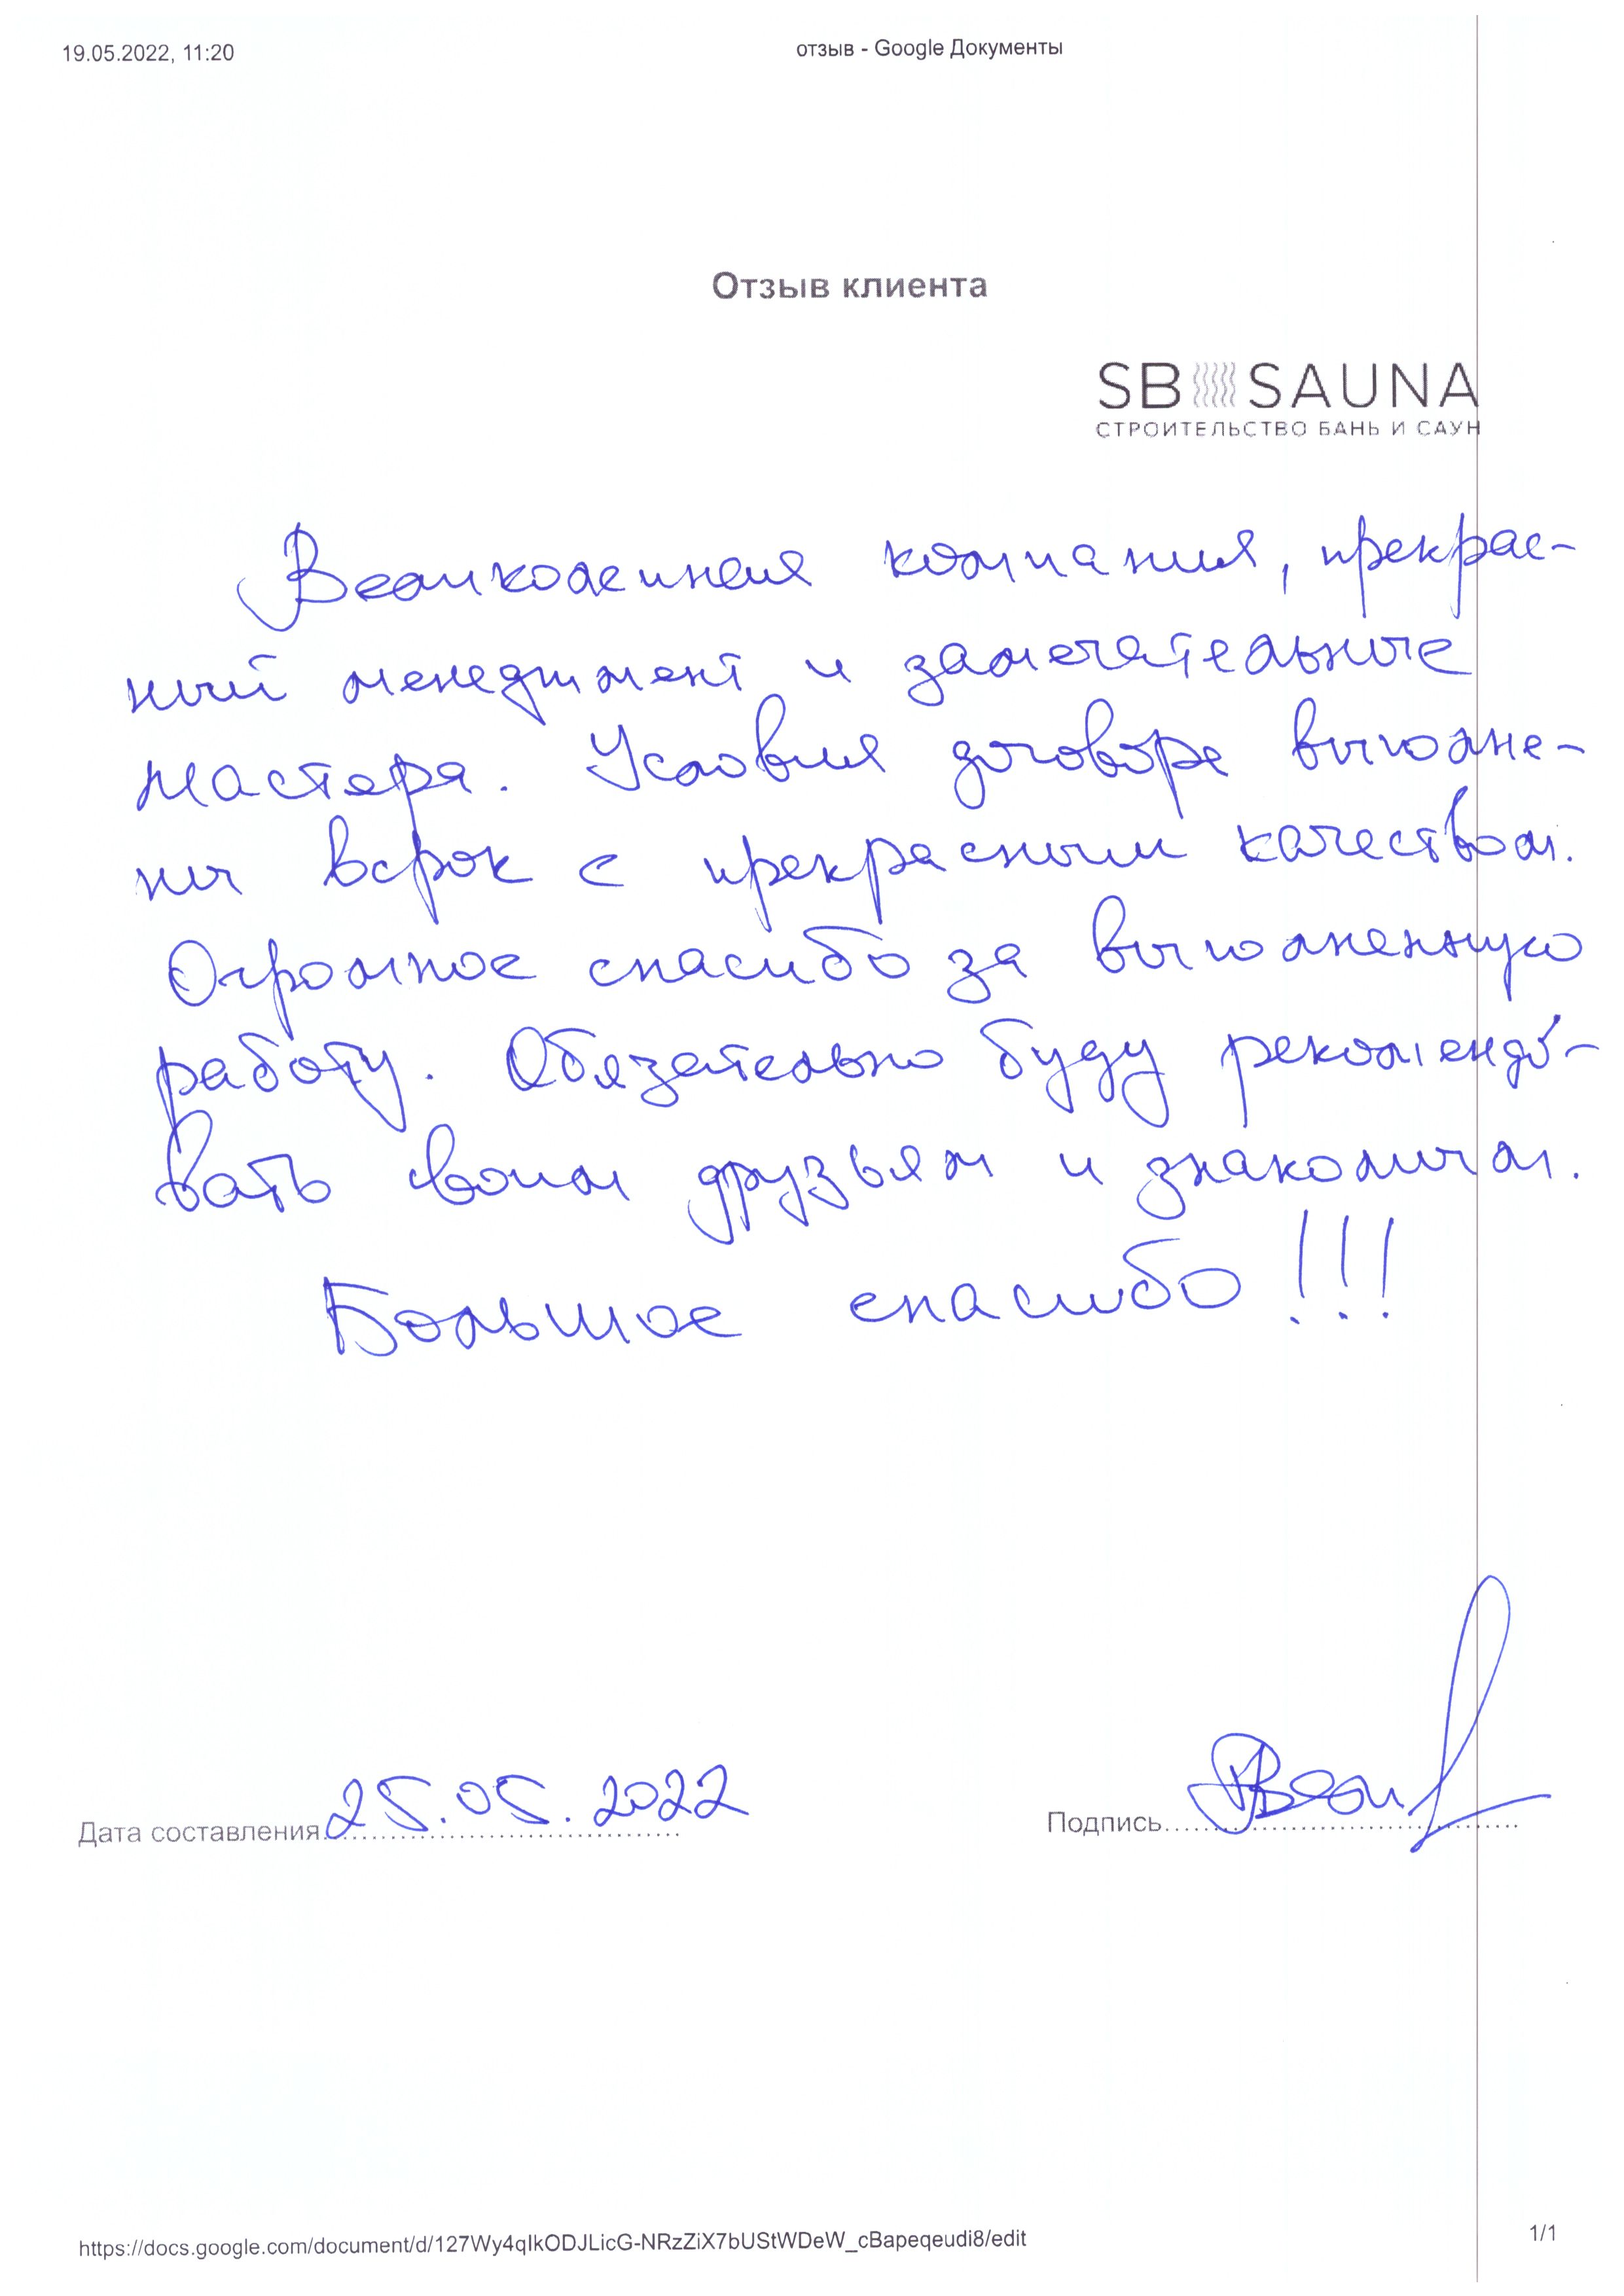 19.05.2022, 11:20 отзыв - Google Документы
Отзыв клиента
SB SAUNA
СТРОИТЕЛЬСТВО БАНЬ И САУН
Великолепная компания, прекрас-
ный менеджмент и замечательные
мастера. Условия договора выполне-
ны всрок с прекрасным качеством.
Огромное спасибо за выполненную
работу. Обязательно буду рекомендо-
вать своим друзьям и знакомым.
Большое спасибо!!!
Дата составления 25.05.2022 Подпись
https://docs.google.com/document/d/127Wy4qIkODJLicG-NRzZiX7bUStWDeW_cBapeqeudi8/edit 1/1